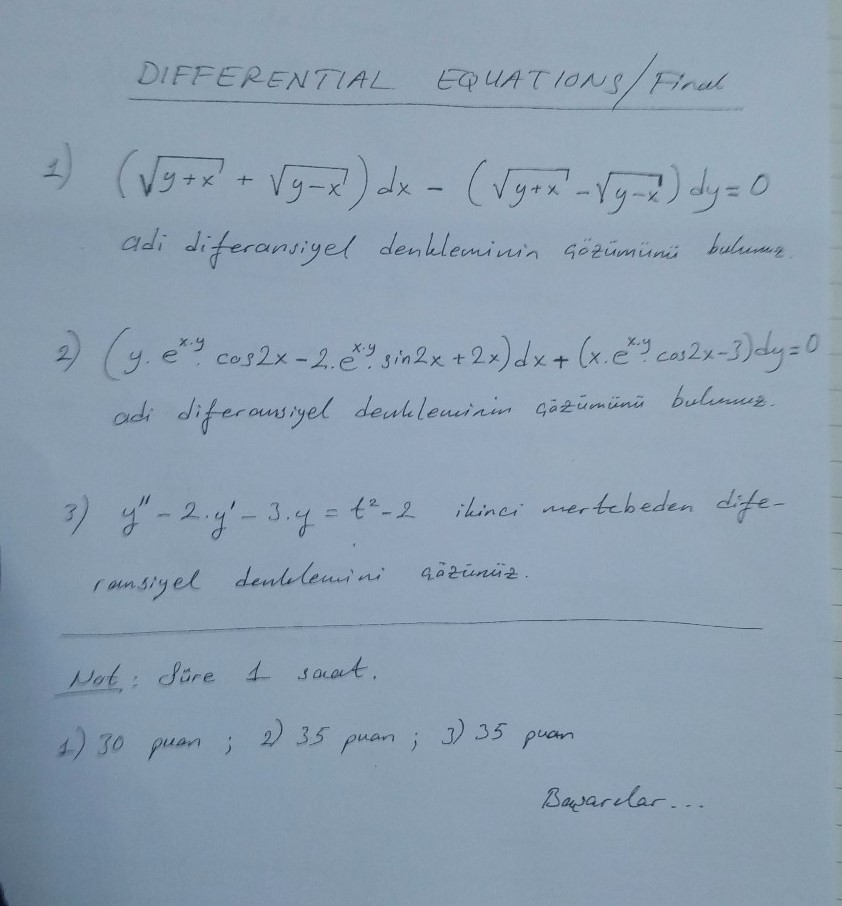 DIFFERENTIAL EQUATIONS/Final
1) (√(y+x) + √(y-x)) dx - (√(y+x) - √(y-x)) dy = 0
adi diferansiyel denkleminin çözümünü bulunuz.
2) (y. e^x.y. cos2x - 2. e^x.y. sin2x + 2x) dx + (x. e^x.y. cos2x - 3) dy = 0
adi diferansiyel denkleminin çözümünü bulunuz.
3) y'' - 2.y' - 3.y = t² - 2 ikinci mertebeden dife-
ransiyel denklemini çözünüz.
Not: Süre 1 saat.
1) 30 puan ; 2) 35 puan ; 3) 35 puan
Başarılar...